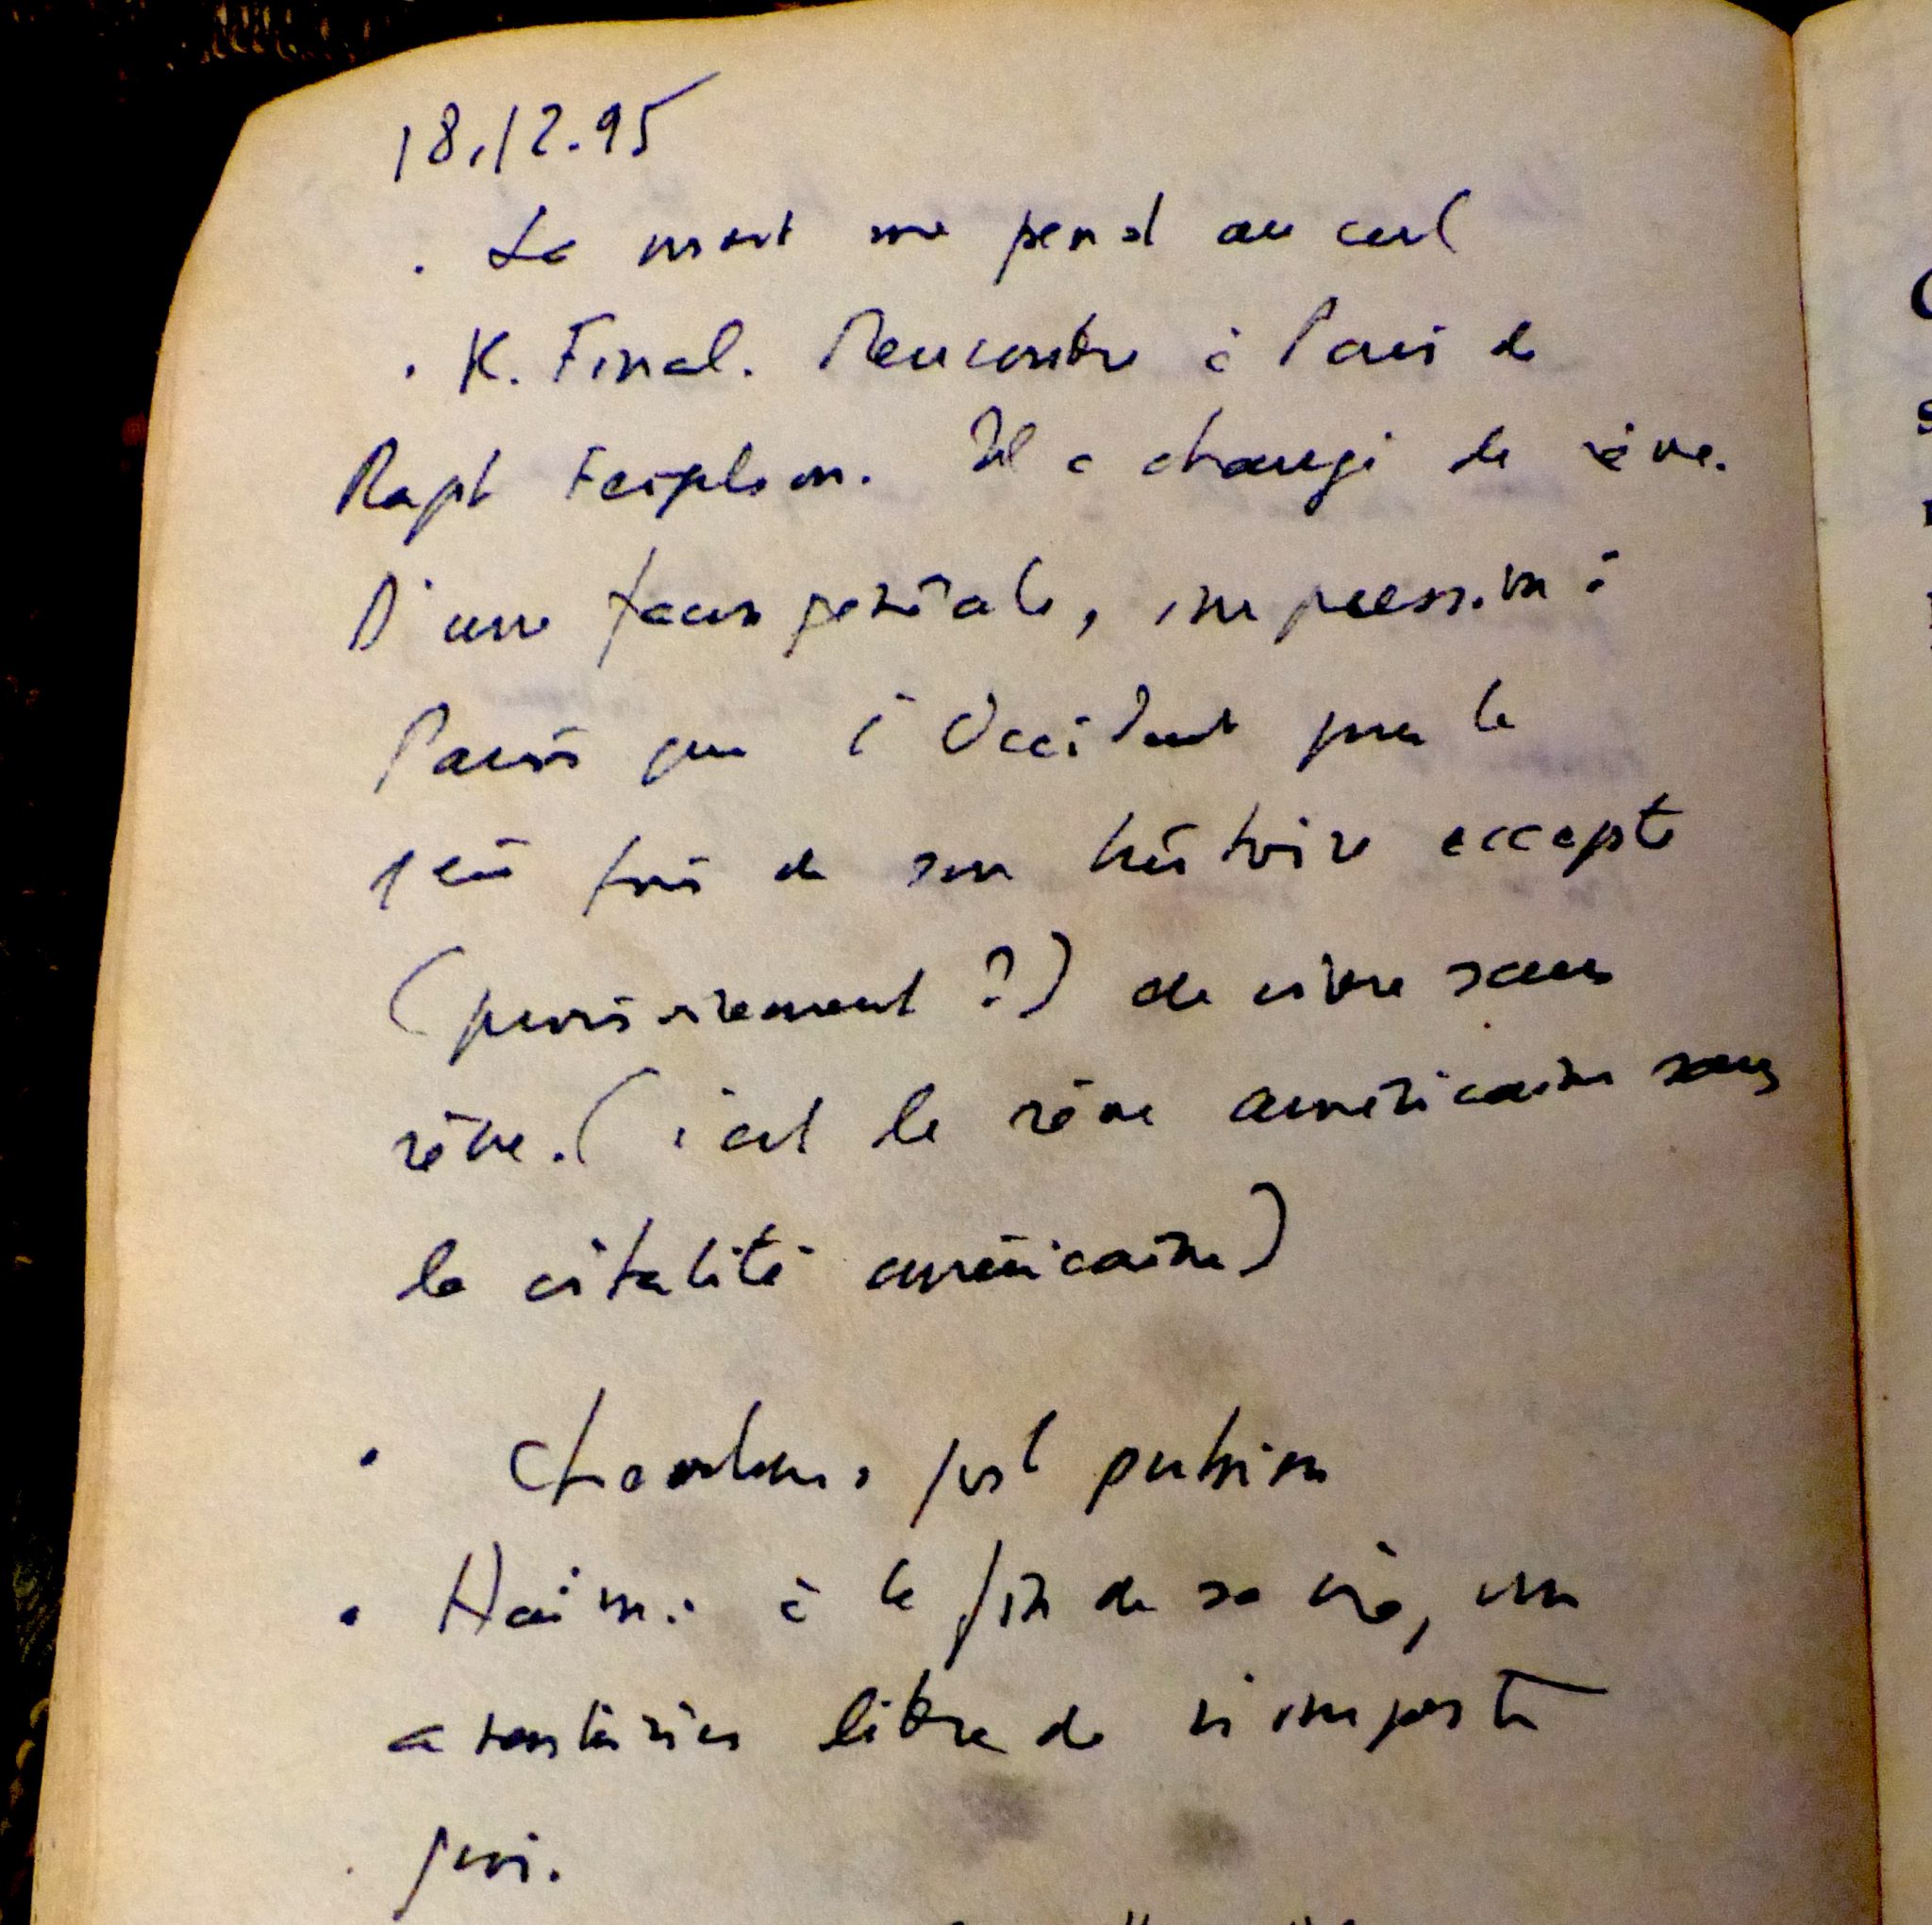 18.12.95
. La mort me pend au cul
. K. Final. Rencontre à Paris de
Raph. Il a changé de rêve.
D'une façon générale, impression à
Paris que l'Occident pour la
1ère fois de son histoire accepte
(provisoirement ?) de vivre sans
rêve. (c'est le rêve américain sans
la vitalité américaine)
. pulsion
. Haïm. à la fin de sa vie, un
a libre de n'importe
quoi.